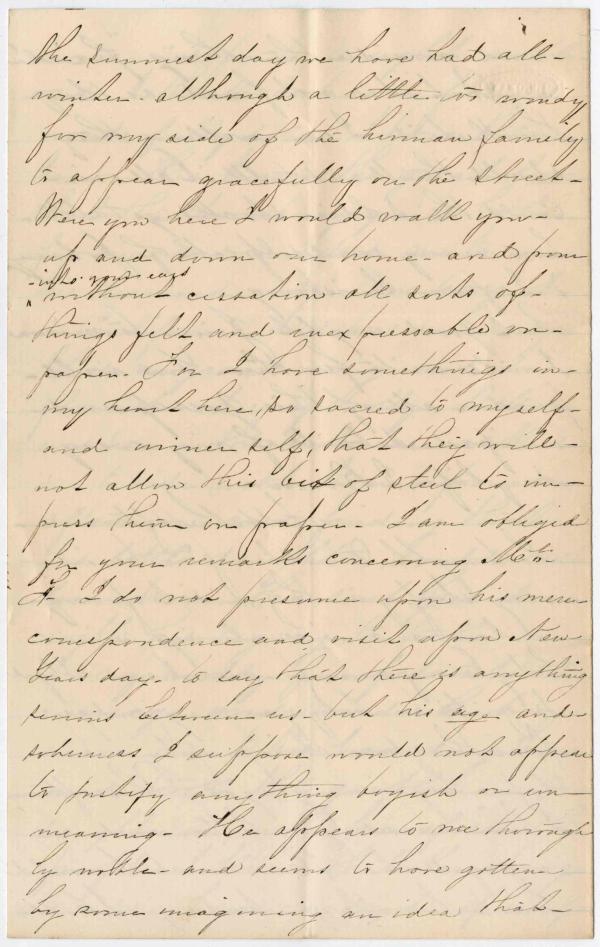 the sunniest day we have had all-
winter - although a little too windy
for my side of the human family
to appear gracefully on the street -
Were you here I would walk you -
up and down our home - and pour
- into your ears
^ without cessation all sorts of -
things felt and inexpressable on -
paper - For I have somethings in -
my heart here, so sacred to myself -
and inner self, that they will -
not allow this bit of steel to im-
press them on paper - I am obliged
for your remarks concerning Mr
A- I do not presume upon his mere
correspondence and visit upon New
Years day - to say that there is anything
serious between us - but his age and -
soberness I suppose would not appear
to justify anything boyish or un-
meaning - He appears to me thorough
ly noble - and seems to have gotten
by some imagining an idea that -